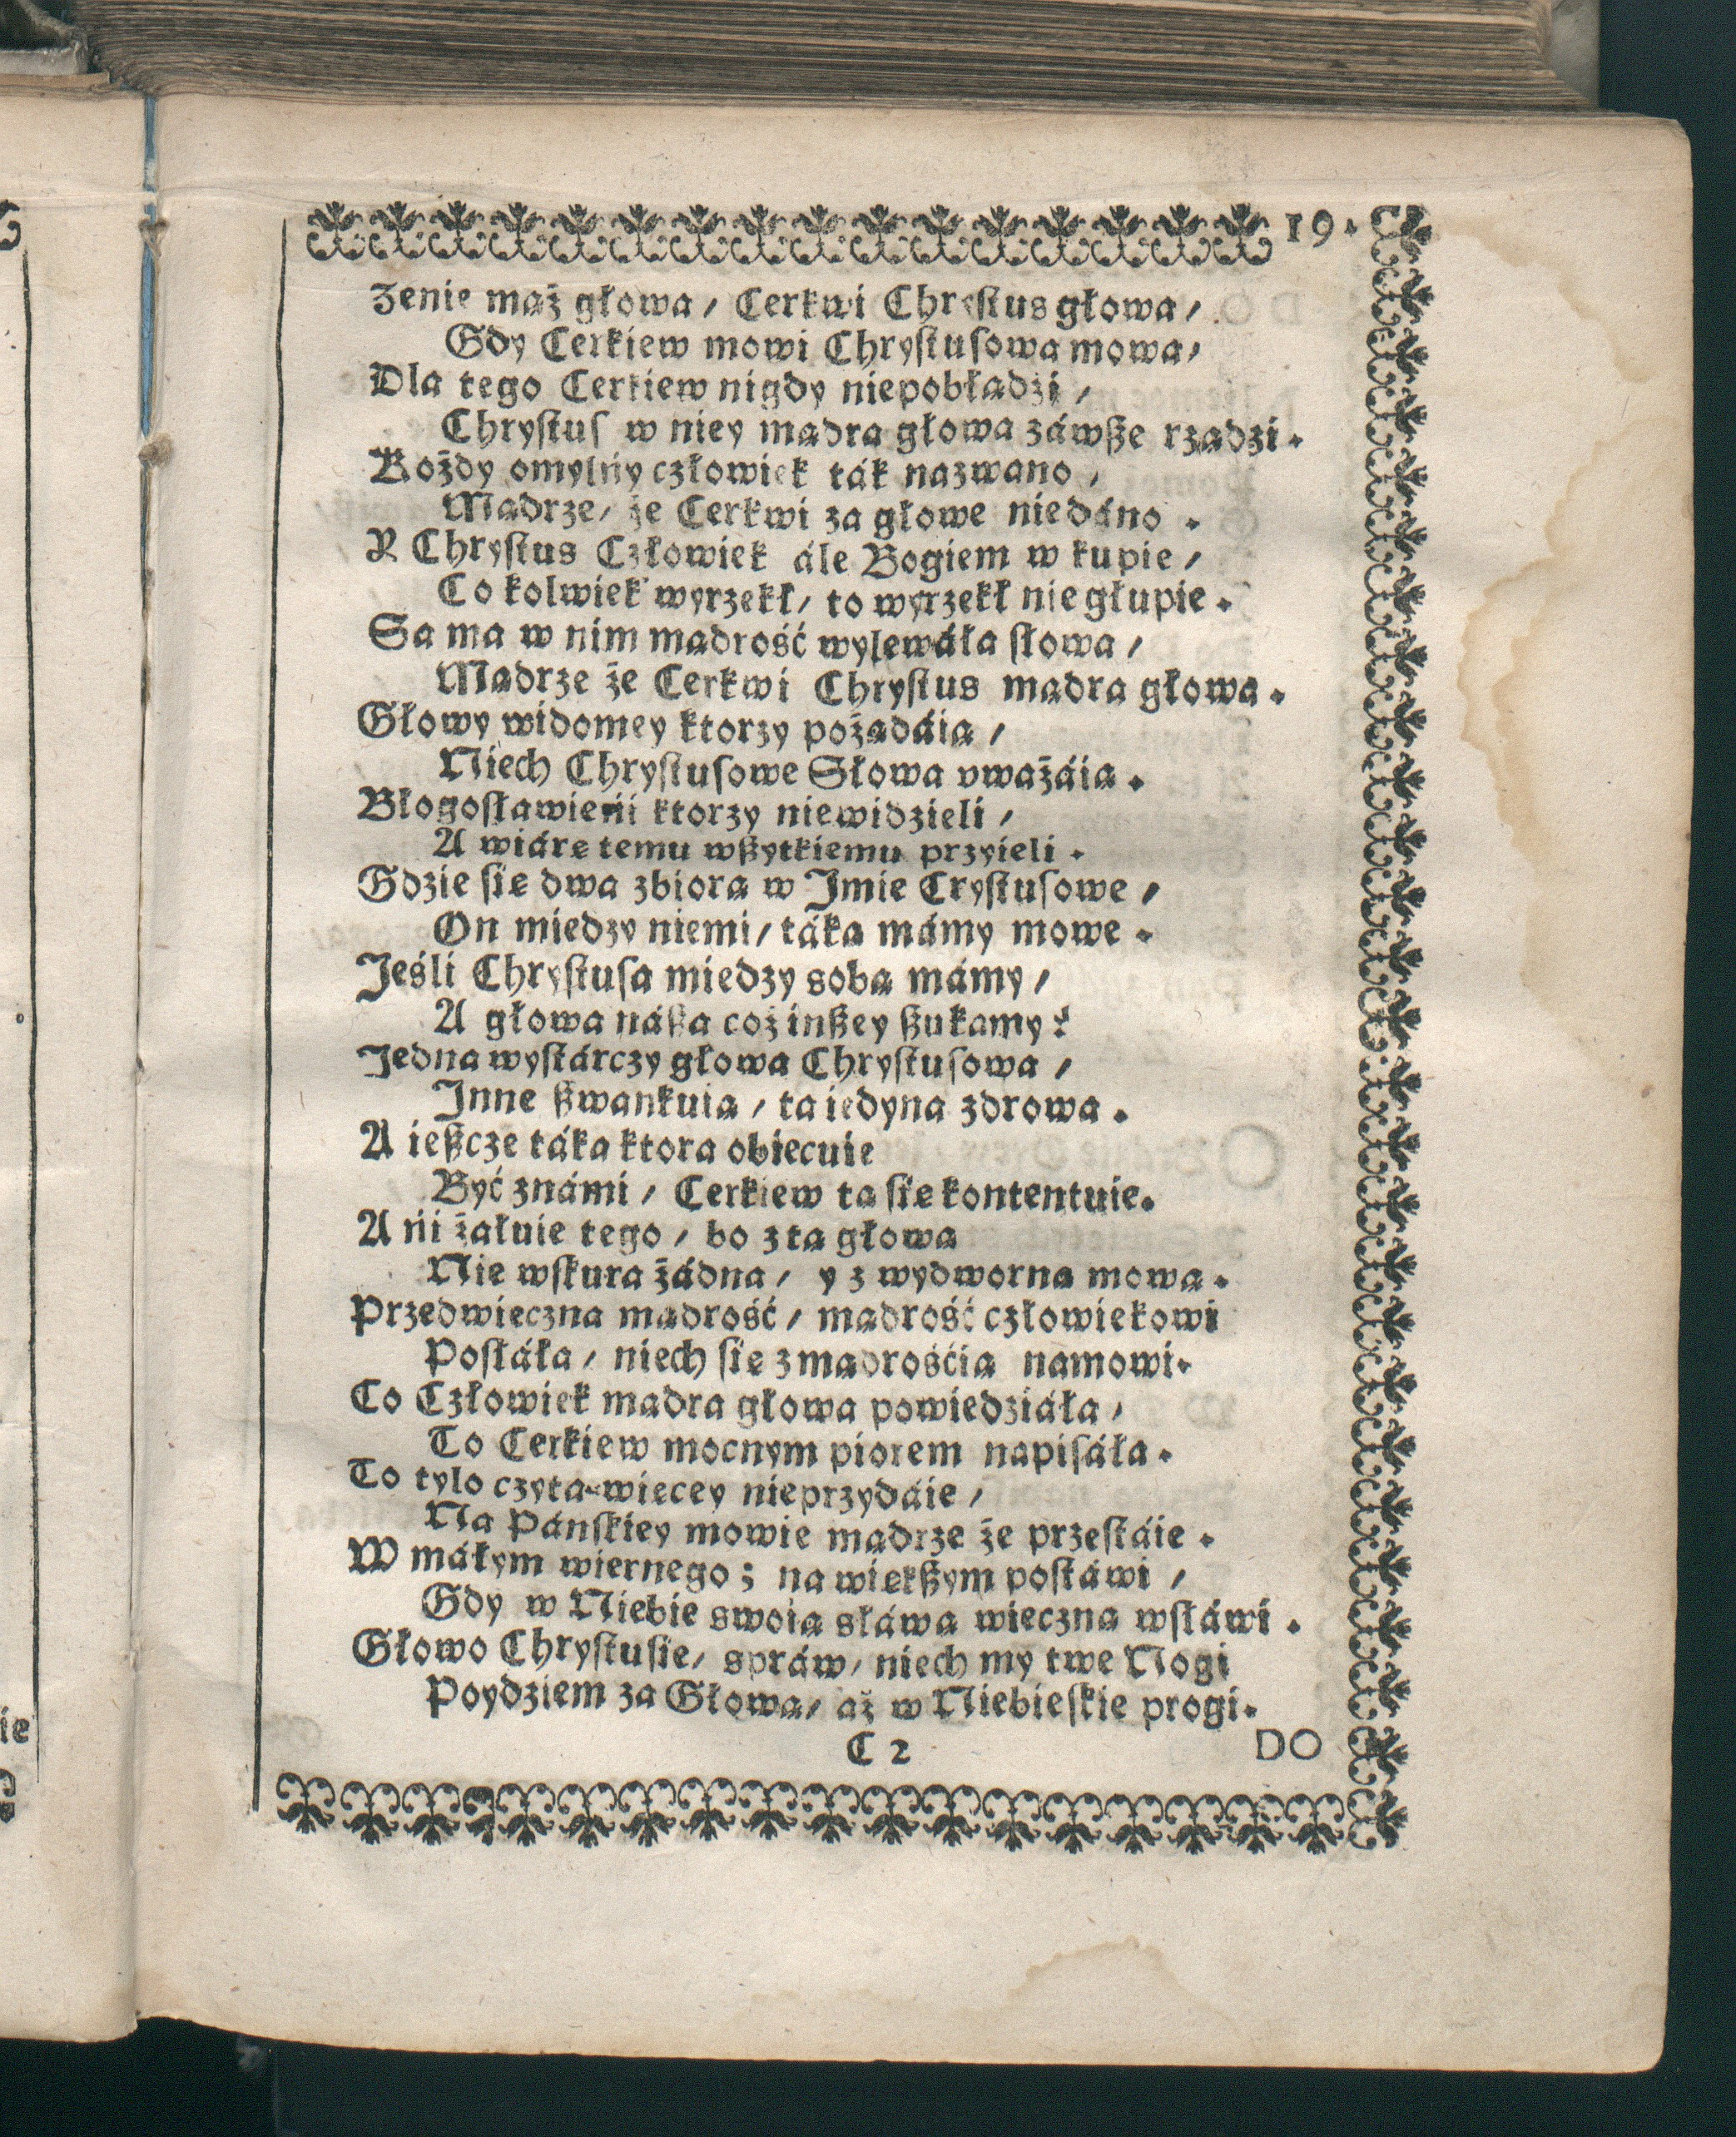 19.
Zenie maż głowa / Cerkwi Chrystus głowa /
Gdy Cerkiew mowi Chrystusowa mowa /
Dla tego Cerkiew nigdy niepobładżi /
Chrystus w niey madra głowa záwsze rzadzi.
Kożdy omylńy człowiek ták nazwano /
Madrze / że Cerkwi za głowe niedáno .
Y Chrystus Człowiek ále Bogiem w kupie /
Co kolwiek wyrzekł / to wyrzekł nie głupie .
Sa ma w nim madrość wylewáła słowa /
Madrze że Cerkwi Chrystus madra głowa .
Głowy widomey ktorzy pożadáia /
Niech Chrystusowe Słowa vważáia .
Błogosławieńi ktorzy niewidzieli /
A wiáre temu wszytkiemu przyieli .
Gdzie sie dwa zbiora w Jmie Crystusowe /
On miedzy niemi / táka mámy mowe .
Jeśli Chrystusa miedzy soba mámy /
A głowa násza coż inszey szukamy ?
Jedna wystárczy głowa Chrystusowa /
Jnne szwankuia / ta iedyna zdrowa .
A ieszcze táka ktora obiecuie
Być známi / Cerkiew ta sie kontentuie.
A ńi żałuie tego / bo z ta głowa
Nie wskura żádna / y z wydworna mowa .
Przedwieczna madrość / madrość człowiekowi
Posłáła / niech sie z madrośćia namowi.
Co Człowiek madra głowa powiedziáła /
To Cerkiew mocnym piorem napisáła .
To tylo czyta wiecey nieprzydáie /
Na Pánskiey mowie madrze że przestáie .
W máłym wiernego ; na wiekszym postáwi /
Gdy w Niebie swoia słáwa wieczna wsłáwi .
Głowo Chrystusie / spráw / niech my twe Nogi
Poydziem za Głowa / aż w Niebieskie progi.
C 2
DO
ie